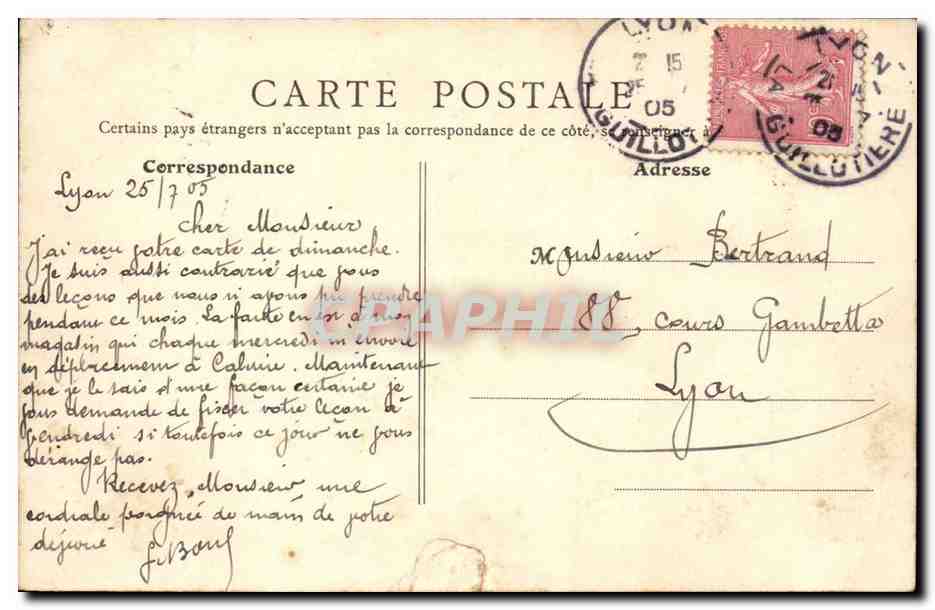 LYON
2 15
25
05
GUILLOT
LYON
LA
05
GUILLOTIERE
CARTE POSTALE
Certains pays étrangers n'acceptant pas la correspondance de ce côté, se renseigner à
Correspondance
Adresse
Lyon 25/7 05
Cher Monsieur
J'ai reçu votre carte de dimanche.
Je suis aussi contrarié que vous
des leçons que nous n'avons pu prendre
pendant ce mois. La faute en est à mon
magasin qui chaque mercredi m'envoie
en déplacement à Caluire. Maintenant
que je le sais d'une façon certaine je
vous demande de fixer votre leçon à
vendredi si toutefois ce jour ne vous
dérange pas.
Recevez, Monsieur une
cordiale poignée de main de votre
dévoué
Monsieur Bertrand
88, cours Gambetta
Lyon
CPAPHIL